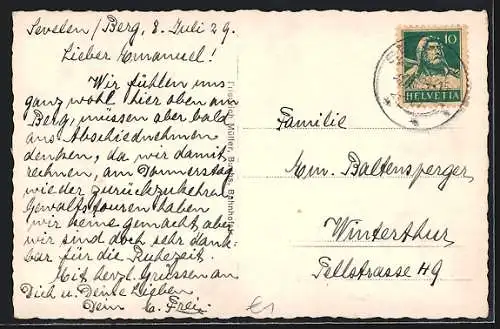 Sevelen / Berg, 8. Juli 29.
Lieber Emanuel!
Wir fühlen uns
ganz wohl hier oben am
Berg, müssen aber bald
ans Abschiednehmen
denken, da wir damit
rechnen, am Donnerstag
wieder zurückzukehren
Gewaltstouren haben
wir keine gemacht, aber
wir sind doch sehr dank-
bar für die Ruhezeit.
Mit herzl. Grüssen an
Dich u. Deine Lieben
Dein E. Frei
Müller, Buchs, Bahnhofstr.
10
HELVETIA
Familie
Em. Baltensperger
Winterthur
Tellstrasse 49
€1